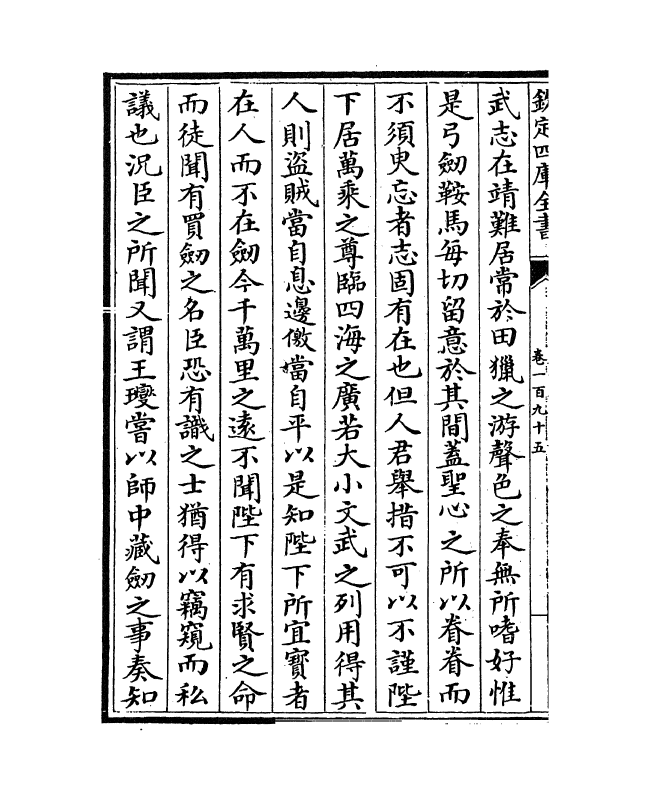 欽定四庫全書
卷一百九十五
武志在靖難居常於田獵之游聲色之奉無所嗜好惟
是弓劒鞍馬每切留意於其間蓋聖心之所以眷眷而
不須臾忘者志固有在也但人君舉措不可以不謹陛
下居萬乘之尊臨四海之廣若大小文武之列用得其
人則盜賊當自息邊儌當自平以是知陛下所宜寳者
在人而不在劒今千萬里之遠不聞陛下有求賢之命
而徒聞有買劒之名臣恐有識之士猶得以竊窺而私
議也况臣之所聞又謂王𤫉嘗以師中藏劒之事奏知